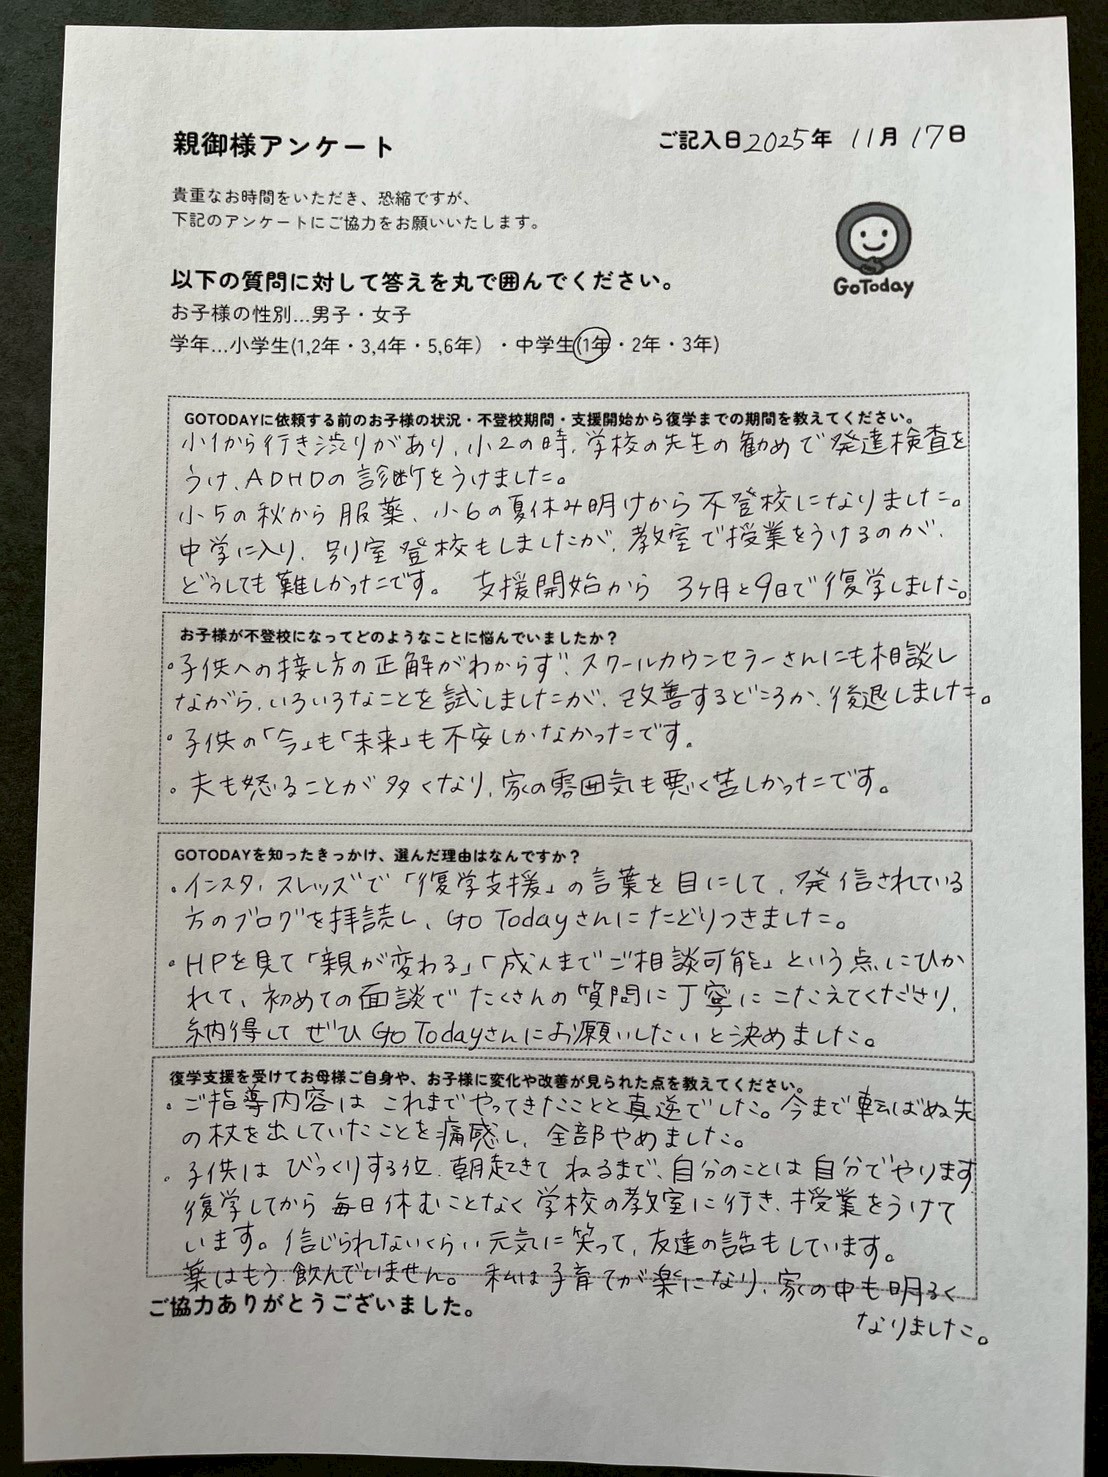 親御様アンケート
ご記入日2025年 11月 17日
貴重なお時間をいただき、恐縮ですが、
下記のアンケートにご協力をお願いいたします。
GoToday
以下の質問に対して答えを丸で囲んでください。
お子様の性別…男子・女子
学年…小学生(1,2年・3,4年・5,6年)・中学生(1年・2年・3年)
GOTODAYに依頼する前のお子様の状況・不登校期間・支援開始から復学までの期間を教えてください。
小1から行き渋りがあり、小2の時、学校の先生の勧めで発達検査を
うけ、ADHDの診断をうけました。
小5の秋から服薬、小6の夏休み明けから不登校になりました。
中学に入り、別室登校もしましたが、教室で授業をうけるのが、
どうしても難しかったです。 支援開始から 3ヶ月と9日で復学しました。
お子様が不登校になってどのようなことに悩んでいましたか？
・子供への接し方の正解がわからず、スクールカウンセラーさんにも相談し
ながら、いろいろなことを試しましたが、改善するどころか、後退しました。
・子供の「今」も「未来」も不安しかなかったです。
・夫も怒ることが多くなり、家の雰囲気も悪く苦しかったです。
GOTODAYを知ったきっかけ、選んだ理由はなんですか？
・インスタ、スレッズで「復学支援」の言葉を目にして、発信されている
方のブログを拝読し、Go Todayさんにたどりつきました。
・HPを見て「親が変わる」「成人までご相談可能」という点にひか
れて、初めての面談でたくさんの質問に丁寧にこたえてくださり、
納得してぜひGo Todayさんにお願いしたいと決めました。
復学支援を受けてお母様ご自身や、お子様に変化や改善が見られた点を教えてください。
・ご指導内容はこれまでやってきたことと真逆でした。今まで転ばぬ先
の杖を出していたことを痛感し、全部やめました。
・子供はびっくりする位、朝起きてねるまで、自分のことは自分でやります
復学してから毎日休むことなく学校の教室に行き、授業をうけて
います。信じられないくらい元気に笑って、友達の話もしています。
薬はもう飲んでいません。私は子育てが楽になり、家の中も明るく
なりました。
ご協力ありがとうございました。